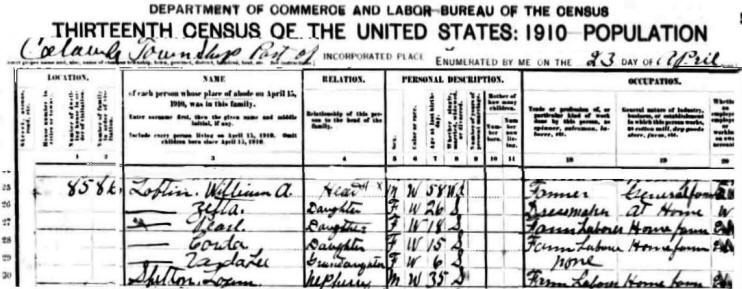 DEPARTMENT OF COMMERCE AND LABOR-BUREAU OF THE CENSUS
THIRTEENTH CENSUS OF THE UNITED STATES: 1910 POPULATION
Township Part of INCORPORATED PLACE ENUMERATED BY ME ON THE 23 DAY OF April
LOCATION. NAME RELATION. PERSONAL DESCRIPTION. OCCUPATION.
of each person whose place of abode on April 15, 1910, was in this family.
Enter surname first, then the given name and middle initial, if any.
Include every person living on April 15, 1910. Omit children born since April 15, 1910.
Relationship of this person to the head of the family.
Sex. Color or race. Age at last birthday.
Mother of how many children.
Number born. Number now living.
Trade or profession of, or particular kind of work done by this person, as spinner, salesman, laborer, etc.
General nature of industry, business, or establishment in which this person works, as cotton mill, dry goods store, farm, etc.
1 2 3 4 5 6 7 8 9 10 11 18 19 20
25 85 Loftin William A. Head M W 58 Wd Farmer General farm
26 — Zella Daughter F W 26 S Dressmaker At Home W
27 — Pearl Daughter F W 18 S Farm Labour Home farm
28 — Daughter F W 15 S Farm Labour Home farm
29 — Grandaughter F W 6 S none
30 Shelton M W 35 S Farm Labour Home farm